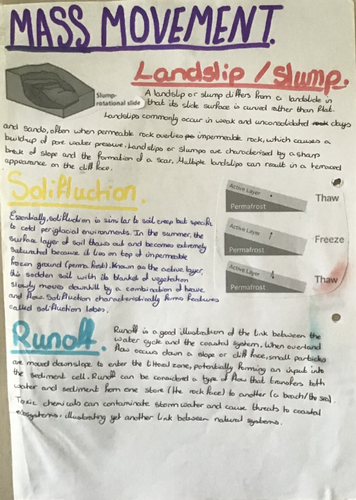 MASS MOVEMENT.
Landslip / Slump.
Slump-
rotational slide
A landslip or slump differs from a landslide in
that its slide surface is curved rather than flat.
Landslips commonly occur in weak and unconsolidated clays
and sands, often when permeable rock overlies impermeable rock, which causes a
build-up of pore water pressure. Landslips or slumps are characterised by a sharp
break of slope and the formation of a scar. Multiple landslips can result in a terraced
appearance on the cliff face.
Solifluction.
Essentially, solifluction is similar to soil creep but specific
to cold periglacial environments. In the summer, the
surface layer of soil thaws out and becomes extremely
saturated because it lies on top of impermeable
frozen ground (permafrost). Known as the active layer,
this sodden soil with its blanket of vegetation
slowly moves downhill by a combination of heave
and flow. Solifluction characteristically forms features
called solifluction lobes.
Active Layer
Permafrost
Thaw
Active Layer
Permafrost
Freeze
Active Layer
Permafrost
Thaw
Runoff.
Runoff is a good illustration of the link between the
water cycle and the coastal system. When overland
flow occurs down a slope or cliff face, small particles
are moved downslope to enter the littoral zone, potentially forming an input into
the sediment cell. Runoff can be considered a type of flow that transfers both
water and sediment from one store (the rock face) to another (a beach/the sea).
Toxic chemicals can contaminate stormwater and cause threats to coastal
ecosystems, illustrating yet another link between natural systems.